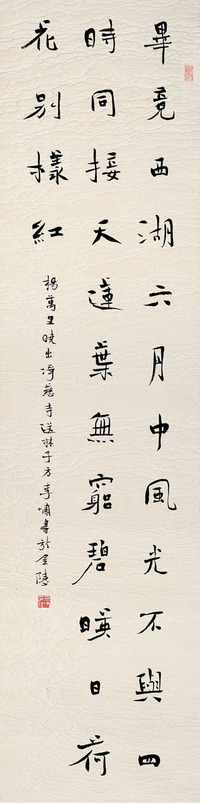 畢竟西湖六月中風光不與四
時同接天蓮葉無窮碧暎日荷
花別樣紅
楊萬里曉出淨慈寺送林子方李嘯書於金陵